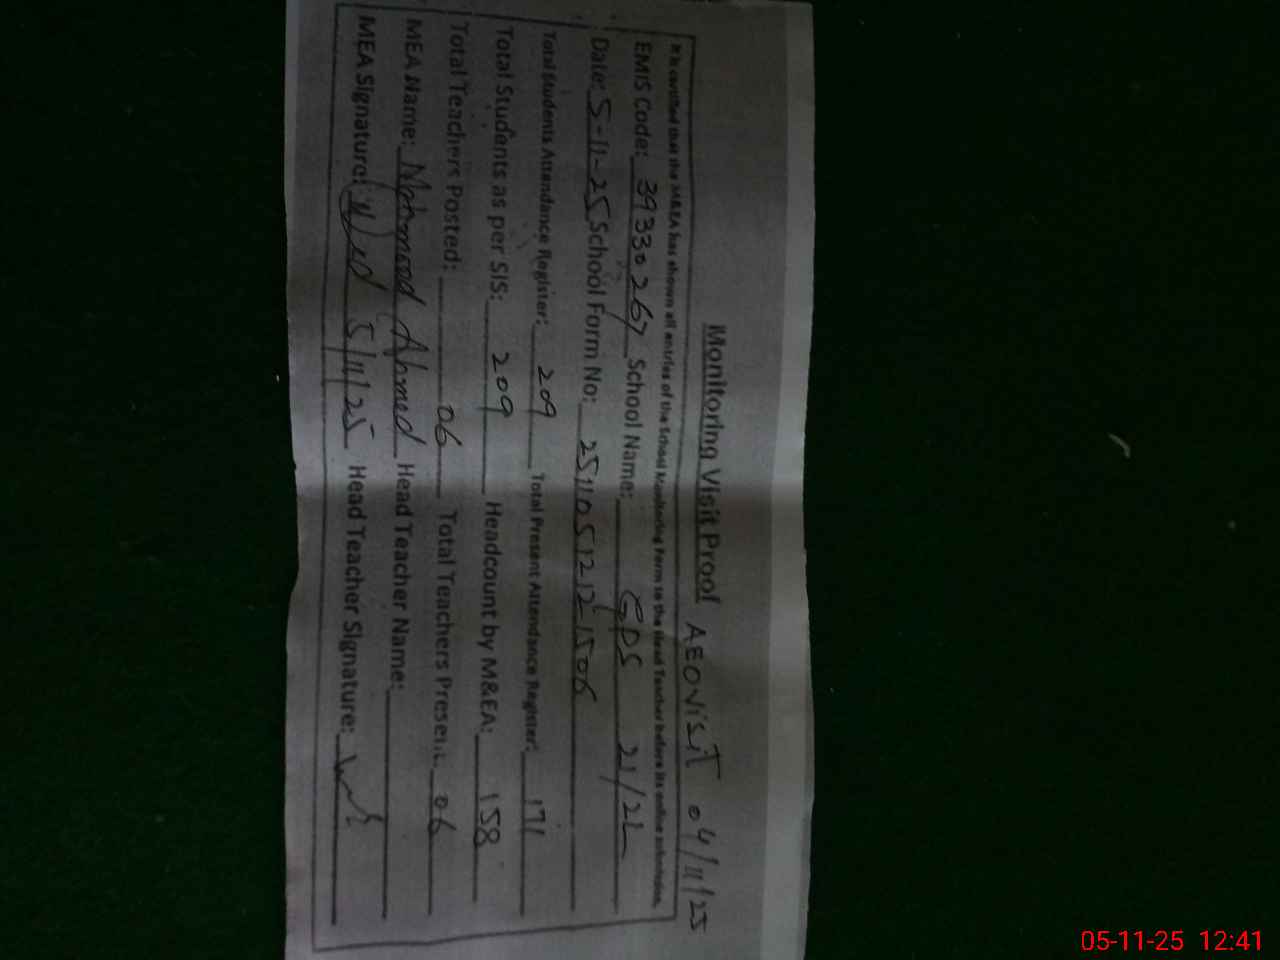 Monitoring Visit Proof AEO visit 04/11/25
It is certified that the M&EA has shown all entries of the School Monitoring Form to the Head Teacher before its online submission.
EMIS Code: 39330267 School Name: GPS 21/2L
Date: 5-11-25 School Form No: 25110512121506
Total Students Attendance Register: 209 Total Present Attendance Register: 171
Total Students as per SIS: 209 Headcount by M&EA: 158
Total Teachers Posted: 06 Total Teachers Present: 06
MEA Name: Mahmood Ahmed Head Teacher Name:
MEA Signature: 5/11/25 Head Teacher Signature:
05-11-25 12:41